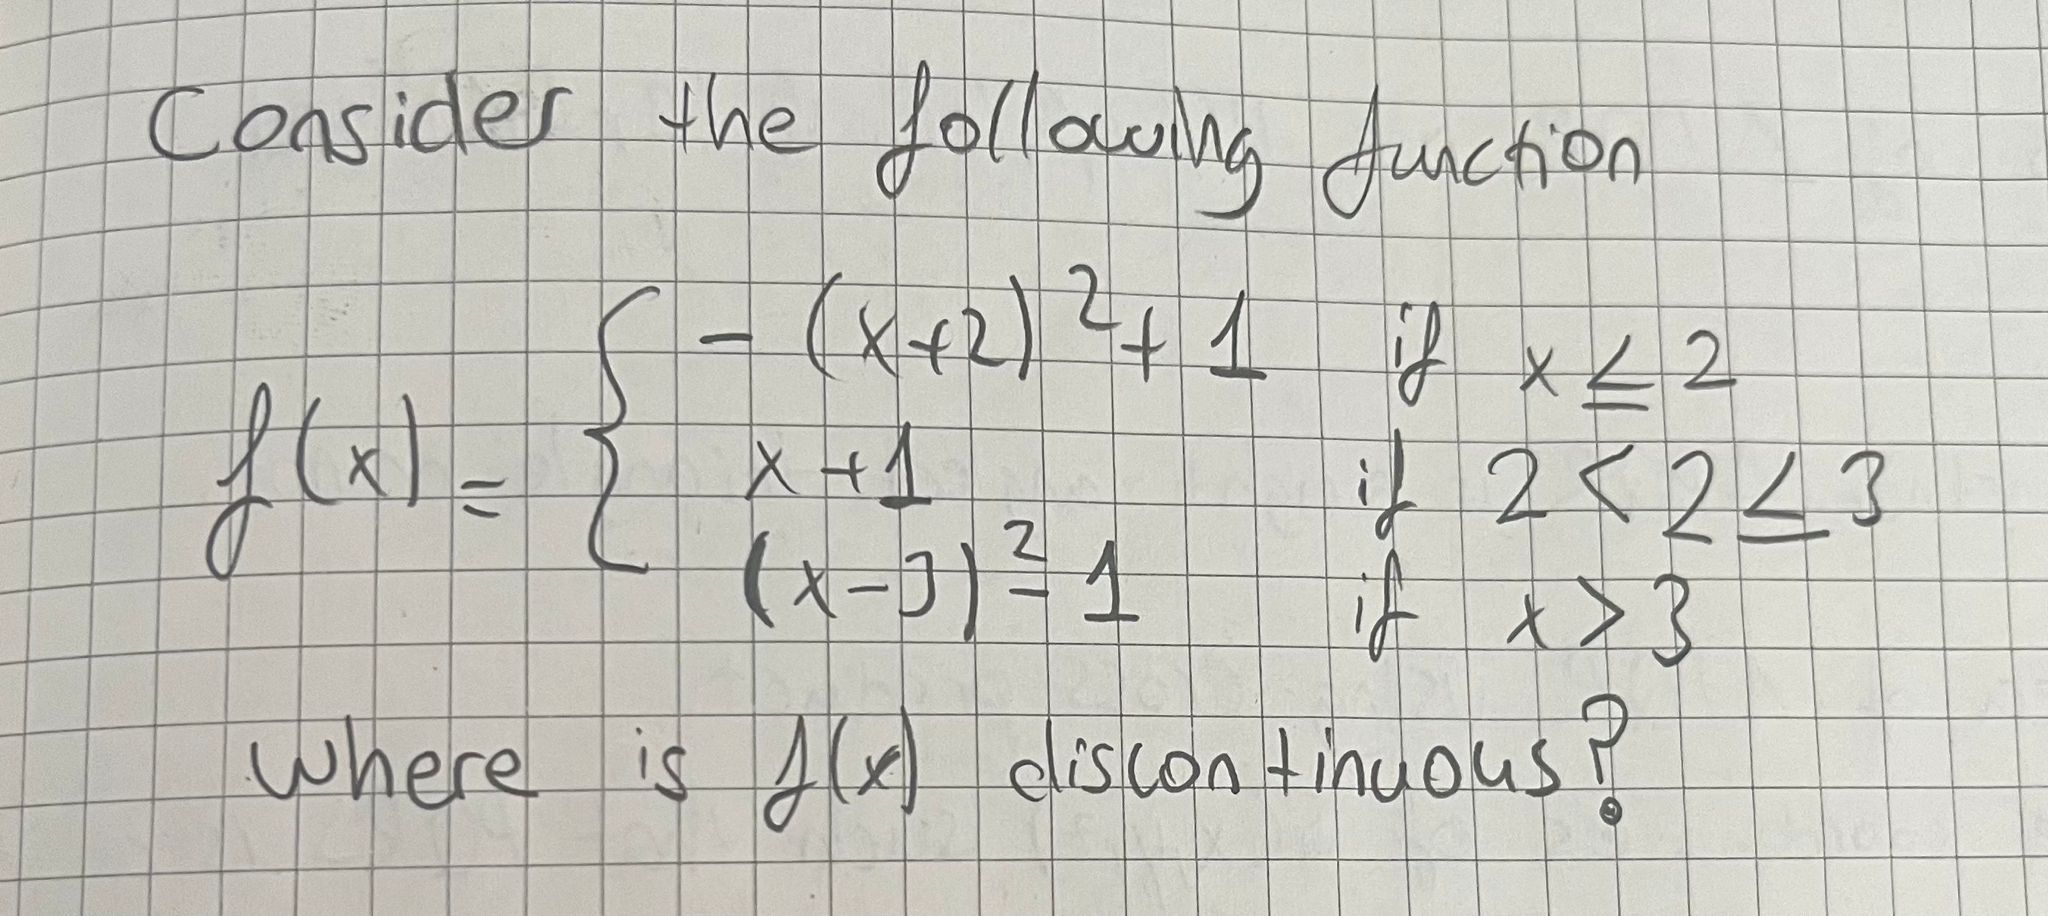 Consider the following function
f(x) = { -(x+2)² + 1 if x ≤ 2
x + 1 if 2 < 2 ≤ 3
(x-3)² - 1 if x > 3
where is f(x) discontinuous?